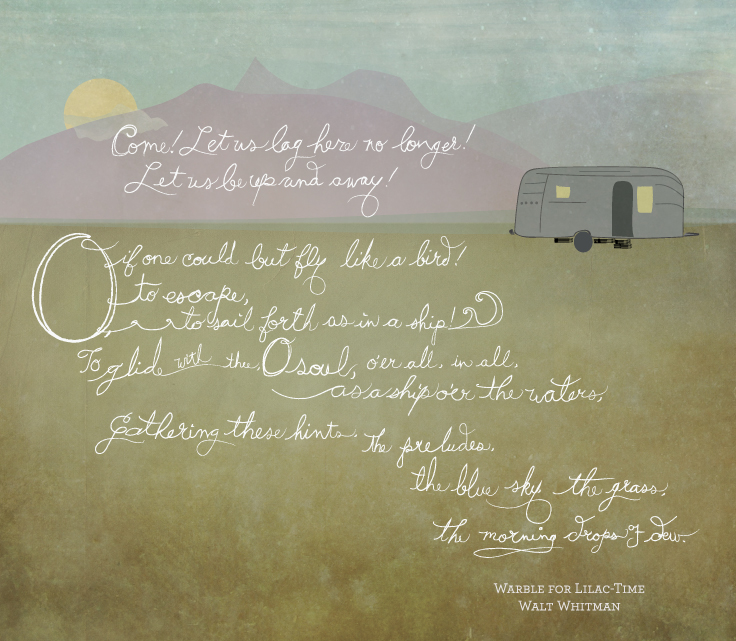 Come! Let us lag here no longer!
Let us be up and away!
O if one could but fly like a bird!
to escape,
to sail forth as in a ship!
To glide with thee, O soul, o'er all, in all,
as a ship o'er the waters,
Gathering these hints, the preludes,
the blue sky, the grass,
the morning drops of dew.
Warble for Lilac-Time
Walt Whitman